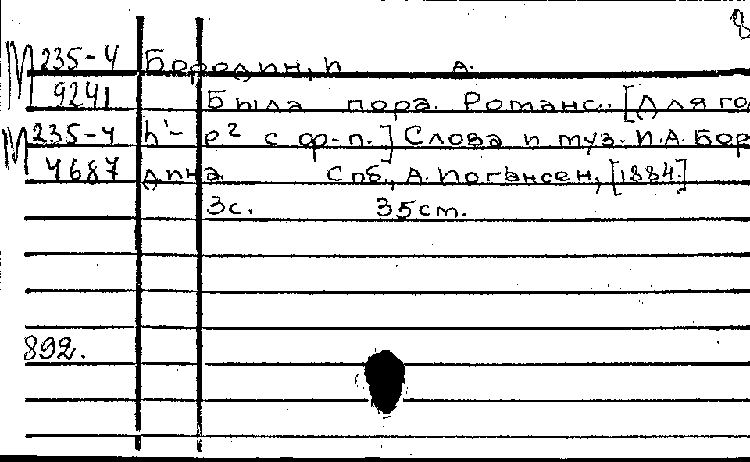 8
М 235-4 Бородин, И А.
9241 Была пора. Романс. [Для го
М 235-4 h'- e² с ф-п.] Слова и муз. И.А. Бор
4687 дина. Спб., А. Иогансен, [1884.]
3с. 35см.
892.